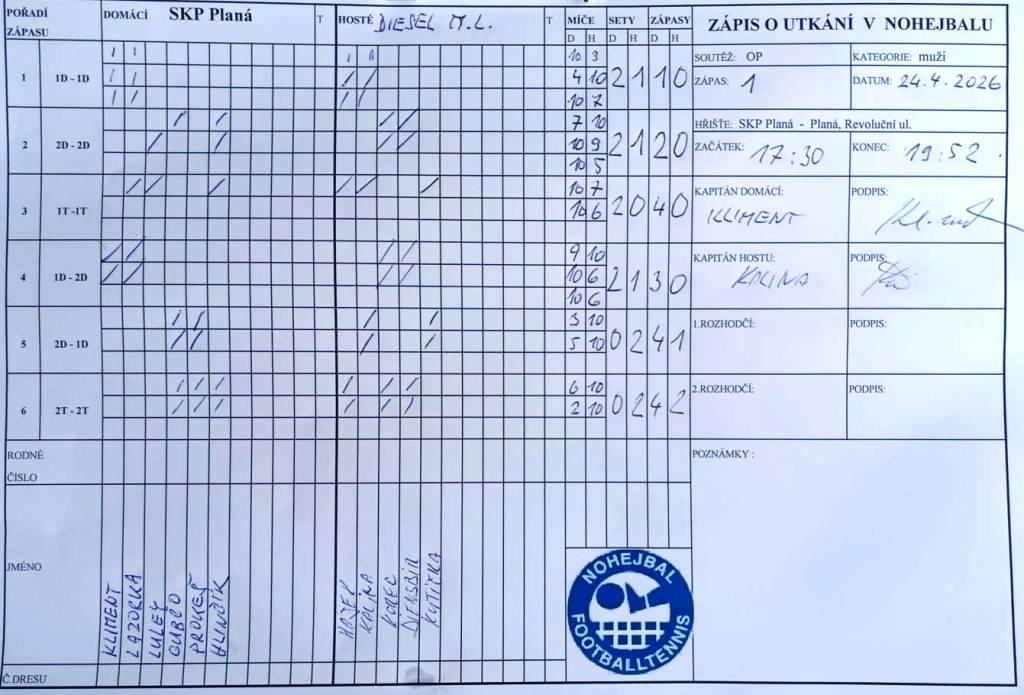 POŘADÍ ZÁPASU DOMÁCÍ SKP Planá T HOSTÉ DIESEL M.L. T MÍČE SETY ZÁPASY
D H D H D H
1 1D - 1D 10 3 2 1 1 0
4 10
10 7
2 2D - 2D 7 10 2 1 2 0
10 9
10 5
3 1T -1T 10 7 2 0 4 0
10 6
4 1D - 2D 9 10 2 1 3 0
10 6
10 6
5 2D - 1D 3 10 0 2 4 1
5 10
6 2T - 2T 6 10 0 2 4 2
2 10
RODNÉ ČÍSLO
JMÉNO
KLIMENT
LAZORKA
LULEY
PROKEŠ
HLINČÍK
KALINA
KOREC
KUTITKA
Č.DRESU
ZÁPIS O UTKÁNÍ V NOHEJBALU
SOUTĚŽ: OP KATEGORIE: muži
ZÁPAS: 1 DATUM: 24.4.2026
HŘIŠTĚ: SKP Planá - Planá, Revoluční ul.
ZAČÁTEK: 17:30 KONEC: 19:52
KAPITÁN DOMÁCÍ: PODPIS:
KLIMENT
KAPITÁN HOSTU: PODPIS:
KALINA
1.ROZHODČÍ: PODPIS:
2.ROZHODČÍ: PODPIS:
POZNÁMKY :
NOHEJBAL
FOOTBALLTENNIS